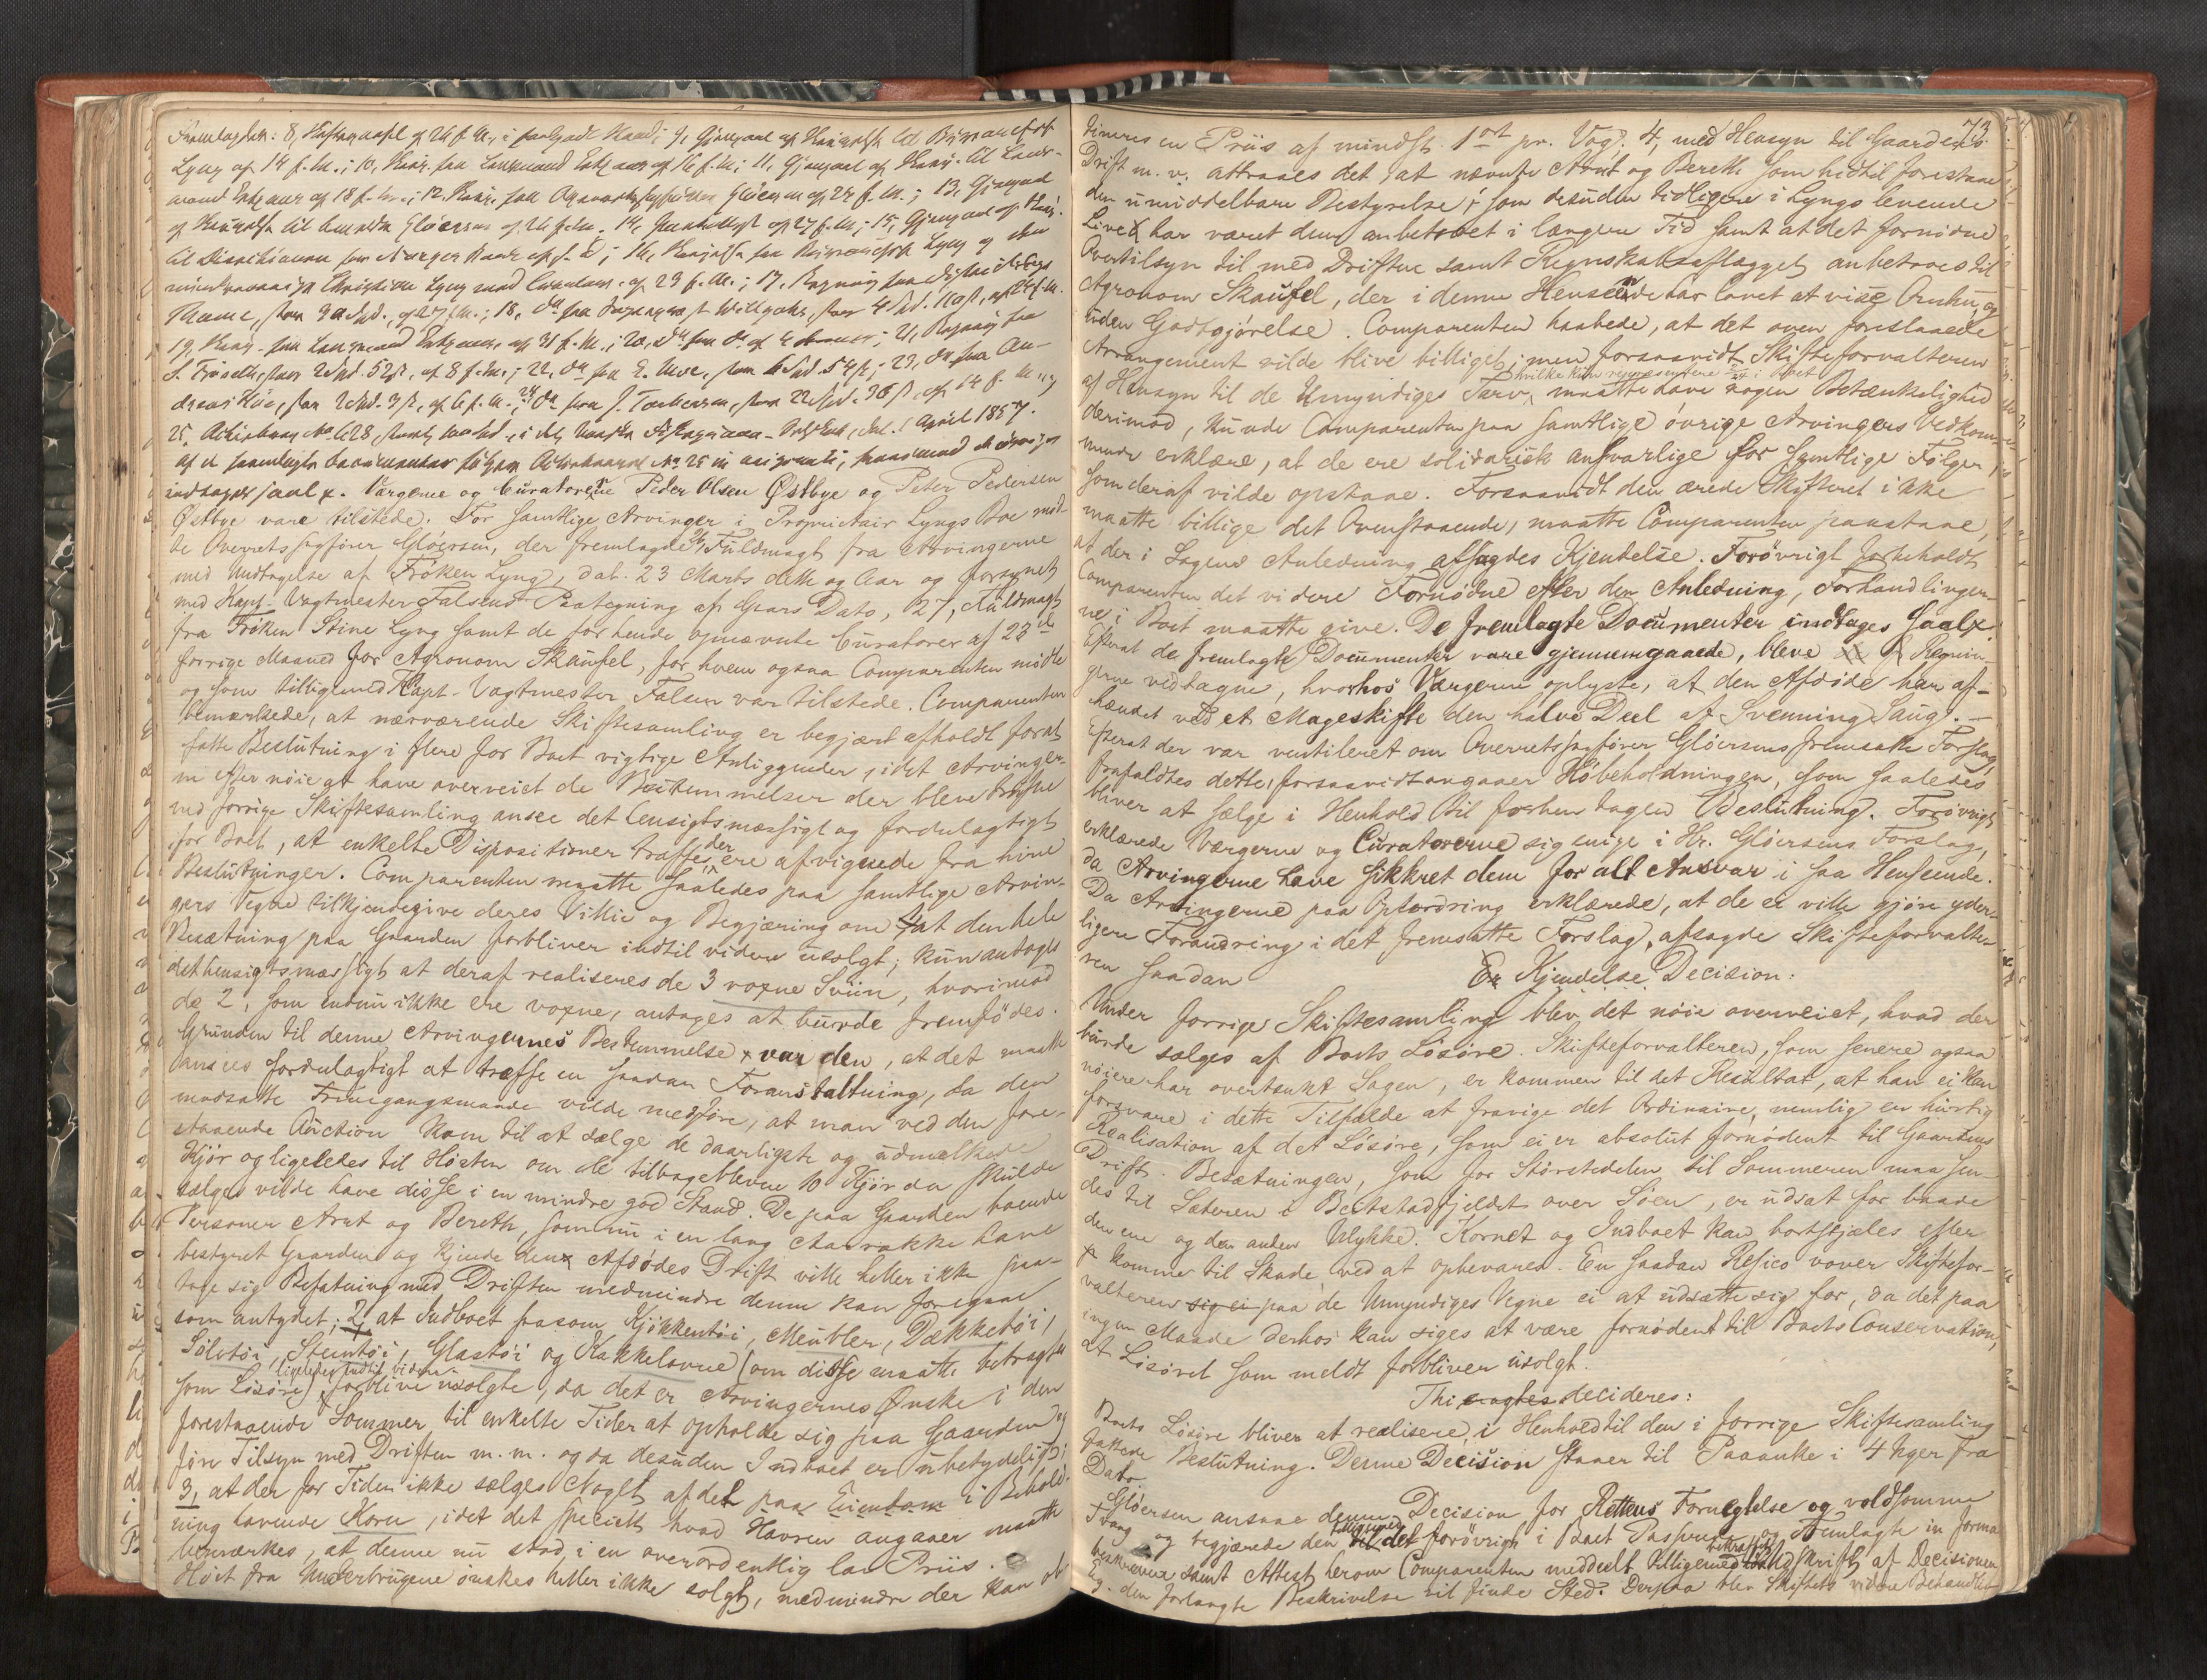 Fremlagdes: 8, af 26 f. M., i Haand; 9, Gjenpart af til
Lyng af 14 f. M.; 10, fra Lensmand af 16 f. M.; 11, Gjenpart af til Lens-
mand af 18 f. M.; 12, fra Gløersen af 24 f. M.; 13, Gjenpart
af til Gløersen af 26 f. M.; 14, af 27 f. M.; 15, Gjenpart af
til for Norges Bank af; 16, fra Lyng og den
Christian Lyng med Curators af 29 f. M.; 17, Regning fra
stor 9 Spd., af 27 f. M.; 18, Do fra stor 4 Spd.
19, fra Lensmand af 31 f. M.; 20, Do fra Do af; 21, Regning fra
S. stor 2 Spd. 52 ß, af 8 f. M.; 22, Do fra E. Moe, stor 6 Spd. 54 ß; 23, Do fra An-
dreas stor 2 Spd. 3 ß, af 6 f. M.; 24 Do fra J. Torbersen, stor 22 Spd. 36 ß, af 14 f. M. og
25, No 628, April 1857.
Af de fremlagte Documenter følger No 25 in originali, hvorimod de øvrige
indtages saal. Værgerne og Curatorerne Peder Olsen Østbye og Peter Pedersen
Østbye vare tilstede. For samtlige Arvinger i Proprietair Lyngs Boe mød-
te Overretssagfører Gløersen, der fremlagde 26, Fuldmagt fra Arvingerne
med Undtagelse af Frøken Lyng, dat. 23 Marts dette og Aar og forsynet
med Kapt. Vagtmester Falsens Paategning af Gaars Dato, 27, Fuldmagt
fra Frøken Stine Lyng samt de for hende opnævnte Curatorer af 23de
forrige Maaned for Agronom Skaufel, for hvem ogsaa Comparenten mødte
og som tilligemed Kapt. Vagtmester Falsen var tilstede. Comparenten
bemærkede, at nærværende Skiftesamling er begjært afholdt forat
fatte Beslutning i flere for Boet vigtige Anliggender, idet Arvinger-
ne efter nøie at have overveiet de Bestemmelser der bleve trufne
ved forrige Skiftesamling ansee det hensigtsmæssigt og fordelagtigt
for Boet, at enkelte Dispositioner træffes, der ere afvigende fra hine
Beslutninger. Comparenten maatte saaledes paa samtlige Arvin-
gers Vegne tilkjendegive deres Villie og Begjæring om 1, at den hele
Besætning paa Gaarden forbliver indtil videre usolgt; kun antoges
det hensigtsmæssigt at deraf realiseres de 3 voxne Sviin, hvorimod
de 2, som endnu ikke ere voxne, antages at burde fremfødes.
Grunden til denne Arvingernes Bestemmelse var den, at det maatte
ansees fordelagtigt at træffe en saadan Foranstaltning, da den
modsatte Fremgangsmaade vilde medføre, at man ved den fore-
staaende Auction kom til at sælge de daarligste og udmalkede
Kjør og ligeledes til Høsten om de tilbageblevne 10 Kjør da skulde
sælges vilde have disse i en mindre god Stand. De paa Gaarden boende
Personer Arnt og Bereth, som nu i en lang Aarrække have
bestyret Gaarden og kjende den Afdødes Drift ville heller ikke paa-
tage sig Befatning med Driften medmindre denne kan foregaae
som antydet; 2, at Indboet saasom Kjøkkentøi, Meubler, Dækketøi,
Sølvtøi, Steentøi, Glastøi og Kakkelovne (om disse maatte betragtes
som Løsøre) ligeledes indtil videre forblive usolgte, da det er Arvingernes Ønske i den
forestaaende Sommer til enkelte Tider at opholde sig paa Gaarden og
føre Tilsyn med Driften m. m. og da desuden Indboet er ubetydeligt;
3, at der for Tiden ikke sælges Noget af det paa Eiendom i Behold-
ning havende Korn, idet det specielt hvad Havren angaaer maatte
bemærkes, at denne nu stod i en overordentlig lav Priis.
Høet fra Underbrugene ønskes heller ikke solgt, medmindre der kan ob-
73
tineres en Priis af mindst 1 ort pr. Vog. 4, med Hensyn til Gaardens
Drift m. v. attraaes det, at nævnte Arnt og Bereth som hidtil forestaae
den umiddelbare Bestyrelse, som desuden tidligere i Lyngs levende
Live har været dem anbetroet i længere Tid samt at det fornødne
Overtilsyn til med Driften samt Regnskabsaflægget anbetroes til
Agronom Skaufel, der i denne Henseende har lovet at vise Omhu, og
uden Godtgjørelse. Comparenten haabede, at det oven foreslaaede
Arrangement vilde blive billiget; men forsaavidt Skifteforvalteren
af Hensyn til de Umyndiges Tarv, hvilke kun repræsentere i Boet maatte have nogen Betænkelighed
derimod, kunde Comparenten paa samtlige øvrige Arvingers Vedkom-
mende erklære, at de ere solidarisk ansvarlige for samtlige Følger,
som deraf vilde opstaae. Forsaavidt den ærede Skifteret ikke
maatte billige det Ovenstaaende, maatte Comparenten paastaae,
at der i Sagens Anledning afsagdes Kjendelse. Forøvrigt forbeholdt
Comparenten det videre Fornødne efter den Anledning, Forhandlinger-
ne i Boet maatte give. De fremlagte Documenter indtages saal.
Efterat de fremlagte Documenter vare gjennemgaaede, bleve Regnin-
gerne vedtagne, hvorhos Værgerne oplyste, at den Afdøde har af-
hændet ved et Mageskifte den halve Deel af Svenning Saug. —
Efterat der var ventileret om Overretssagfører Gløersens fremsatte Forslag,
frafaldtes dette, forsaavidt angaaer Høbeholdningen, som saaledes
bliver at sælge i Henhold til forhen tagen Beslutning. Forøvrigt
erklærede Værgerne og Curatorerne sig enige i Hr. Gløersens Forslag,
da Arvingerne have sikkret dem for alt Ansvar i saa Henseende.
Da Arvingerne paa Opfordring erklærede, at de ei ville gjøre yder-
ligere Forandring i det fremsatte Forslag, afsagde Skifteforvalte-
ren saadan
Kjendelse Decision:
Under forrige Skiftesamling blev det nøie overveiet, hvad der
burde sælges af Boets Løsøre. Skifteforvalteren, som senere ogsaa
nøiere har overtænkt Sagen, er kommen til det Resultat, at han ei kan
forsvare i dette Tilfælde at fravige det Ordinaire, nemlig en hurtig
Realisation af det Løsøre, som ei er absolut fornødent til Gaardens
Drift. Besætningen, som for Størstedelen til Sommeren maa sen-
des til Sæteren i Beitstadfjeldet over Søen, er udsat for baade
den ene og den anden Ulykke. Kornet og Indboet kan bortstjæles eller
komme til Skade ved at opbevares. En saadan Resico vover Skiftefor-
valteren sig ei paa de Umyndiges Vegne ei at udsætte sig for, da det paa
ingen Maade derhos kan siges at være fornødent til Boets Conservation,
at Løsøret som meldt forbliver usolgt.
Thi decideres:
Boets Løsøre bliver at realisere i Henhold til den i forrige Skiftesamling
fattede Beslutning. Denne Decision staaer til Paaanke i 4 Uger fra
Dato.
Gløersen ansaae denne Decision for Rettens Fornegtelse og voldsomme
Tvang og begjærede den tilligemed det forøvrigt i Boet Passerede og Fremlagte in forma
beskreven samt Attest herom Comparenten meddeelt tilligemed bekræftet Udskrift af Decisionen
den forlangte Beskrivelse vil finde Sted. Derpaa blev Skiftets videre Behandling